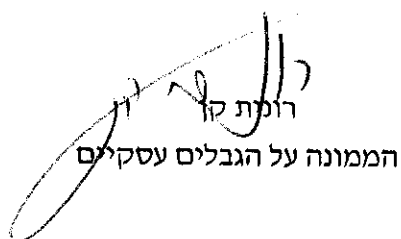 רונית ק
הממונה על הגבלים עסקיים